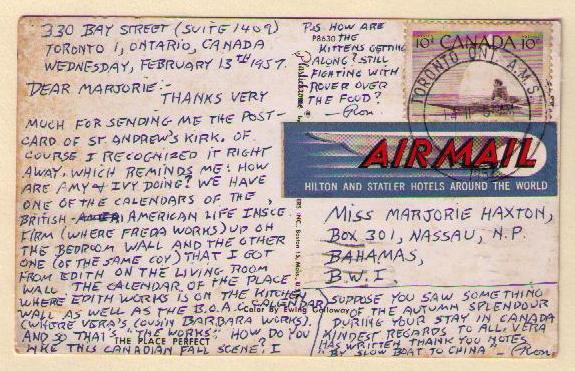 330 BAY STREET (SUITE 1409)
TORONTO 1, ONTARIO, CANADA
WEDNESDAY, FEBRUARY 13TH 1957.
DEAR MARJORIE:-
THANKS VERY
MUCH FOR SENDING ME THE POST-
CARD OF ST ANDREW'S KIRK. OF
COURSE I RECOGNIZED IT RIGHT
AWAY. WHICH REMINDS ME: HOW
ARE AMY & IVY DOING? WE HAVE
ONE OF THE CALENDARS OF THE
BRITISH- AMERICAN LIFE INSCE
FIRM (WHERE FREDA WORKS) UP ON
THE BEDROOM WALL AND THE OTHER
ONE (OF THE SAME COY) THAT I GOT
FROM EDITH ON THE LIVING ROOM
WALL THE CALENDAR OF THE PLACE
WHERE EDITH WORKS IS ON THE KITCHEN
WALL AS WELL AS THE B.O.A.C. CALENDAR
(WHERE VERA'S COUSIN BARBARA WORKS).
AND SO THAT'S "THE WORKS". HOW DO YOU
LIKE THIS CANADIAN FALL SCENE? I
THE PLACE PERFECT
Color By Ewing Galloway
P.S. HOW ARE
P8630
THE
KITTENS GETTING
ALONG? STILL
FIGHTING WITH
ROVER OVER
THE FOOD?
-Ron.
Plastichrome
INC., Boston 15, Mass.
10¢ CANADA 10¢
TORONTO ONT. A.M.S.
14 II
AIRMAIL
HILTON AND STATLER HOTELS AROUND THE WORLD
MISS MARJORIE HAXTON,
BOX 301, NASSAU, N.P.
BAHAMAS,
B.W.I.
SUPPOSE YOU SAW SOMETHING
OF THE AUTUMN SPLENDOUR
DURING YOUR STAY IN CANADA
KINDEST REGARDS TO ALL. VERA
HAS WRITTEN THANK YOU NOTES
BY SLOW BOAT TO CHINA - Ron.